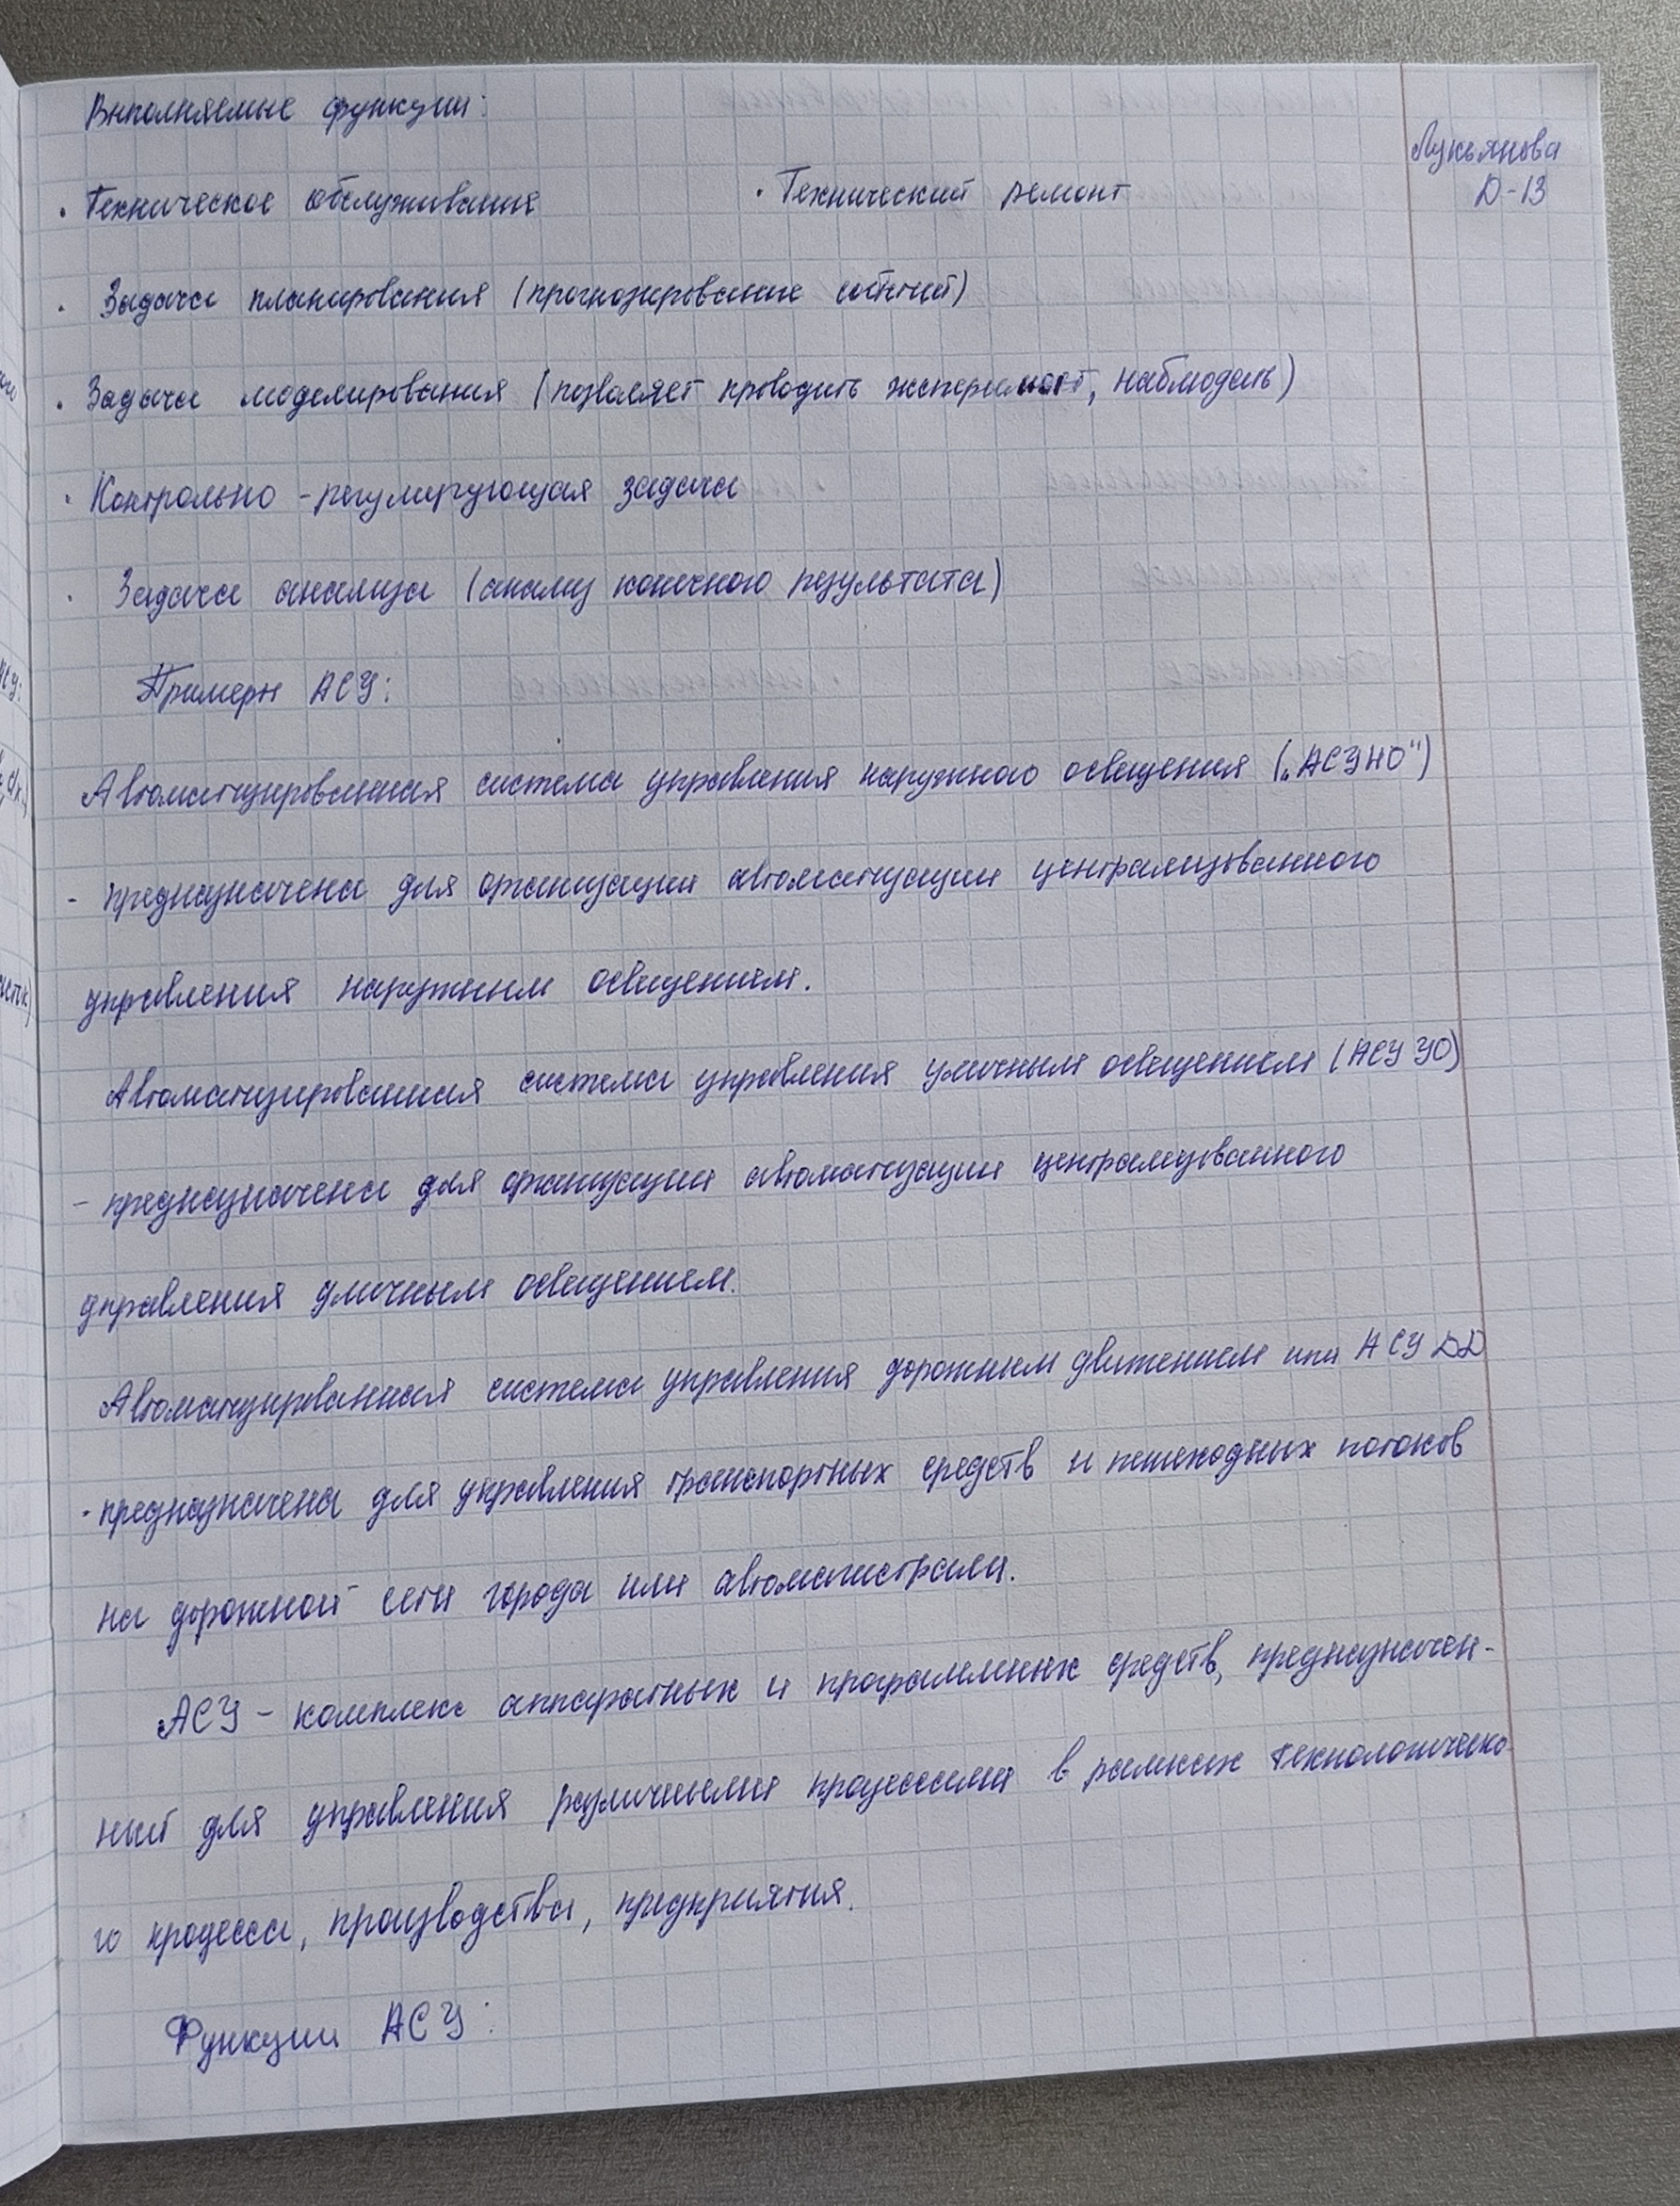 Выполняемые функции:
Лукьянова
Д-13
· Техническое обслуживание · Технический ремонт
· Задача планирования (прогнозирование событий)
· Задача моделирования (позволяет проводить эксперимент, наблюдать)
· Контрольно-регулирующая задача
· Задача анализа (анализ конечного результата)
Примеры АСУ:
Автоматизированная система управления наружного освещения („АСУНО")
- предназначена для организации автоматизации централизованного
управления наружным освещением.
Автоматизированная система управления уличным освещением (АСУ УО)
- предназначена для организации автоматизации централизованного
управления уличным освещением.
Автоматизированная система управления дорожным движением или АСУ ДД
- предназначена для управления транспортных средств и пешеходных потоков
на дорожной сети города или автомагистрали.
АСУ - комплекс аппаратных и программных средств, предназначен-
ный для управления различными процессами в рамках технологическо-
го процесса, производства, предприятия.
Функции АСУ: